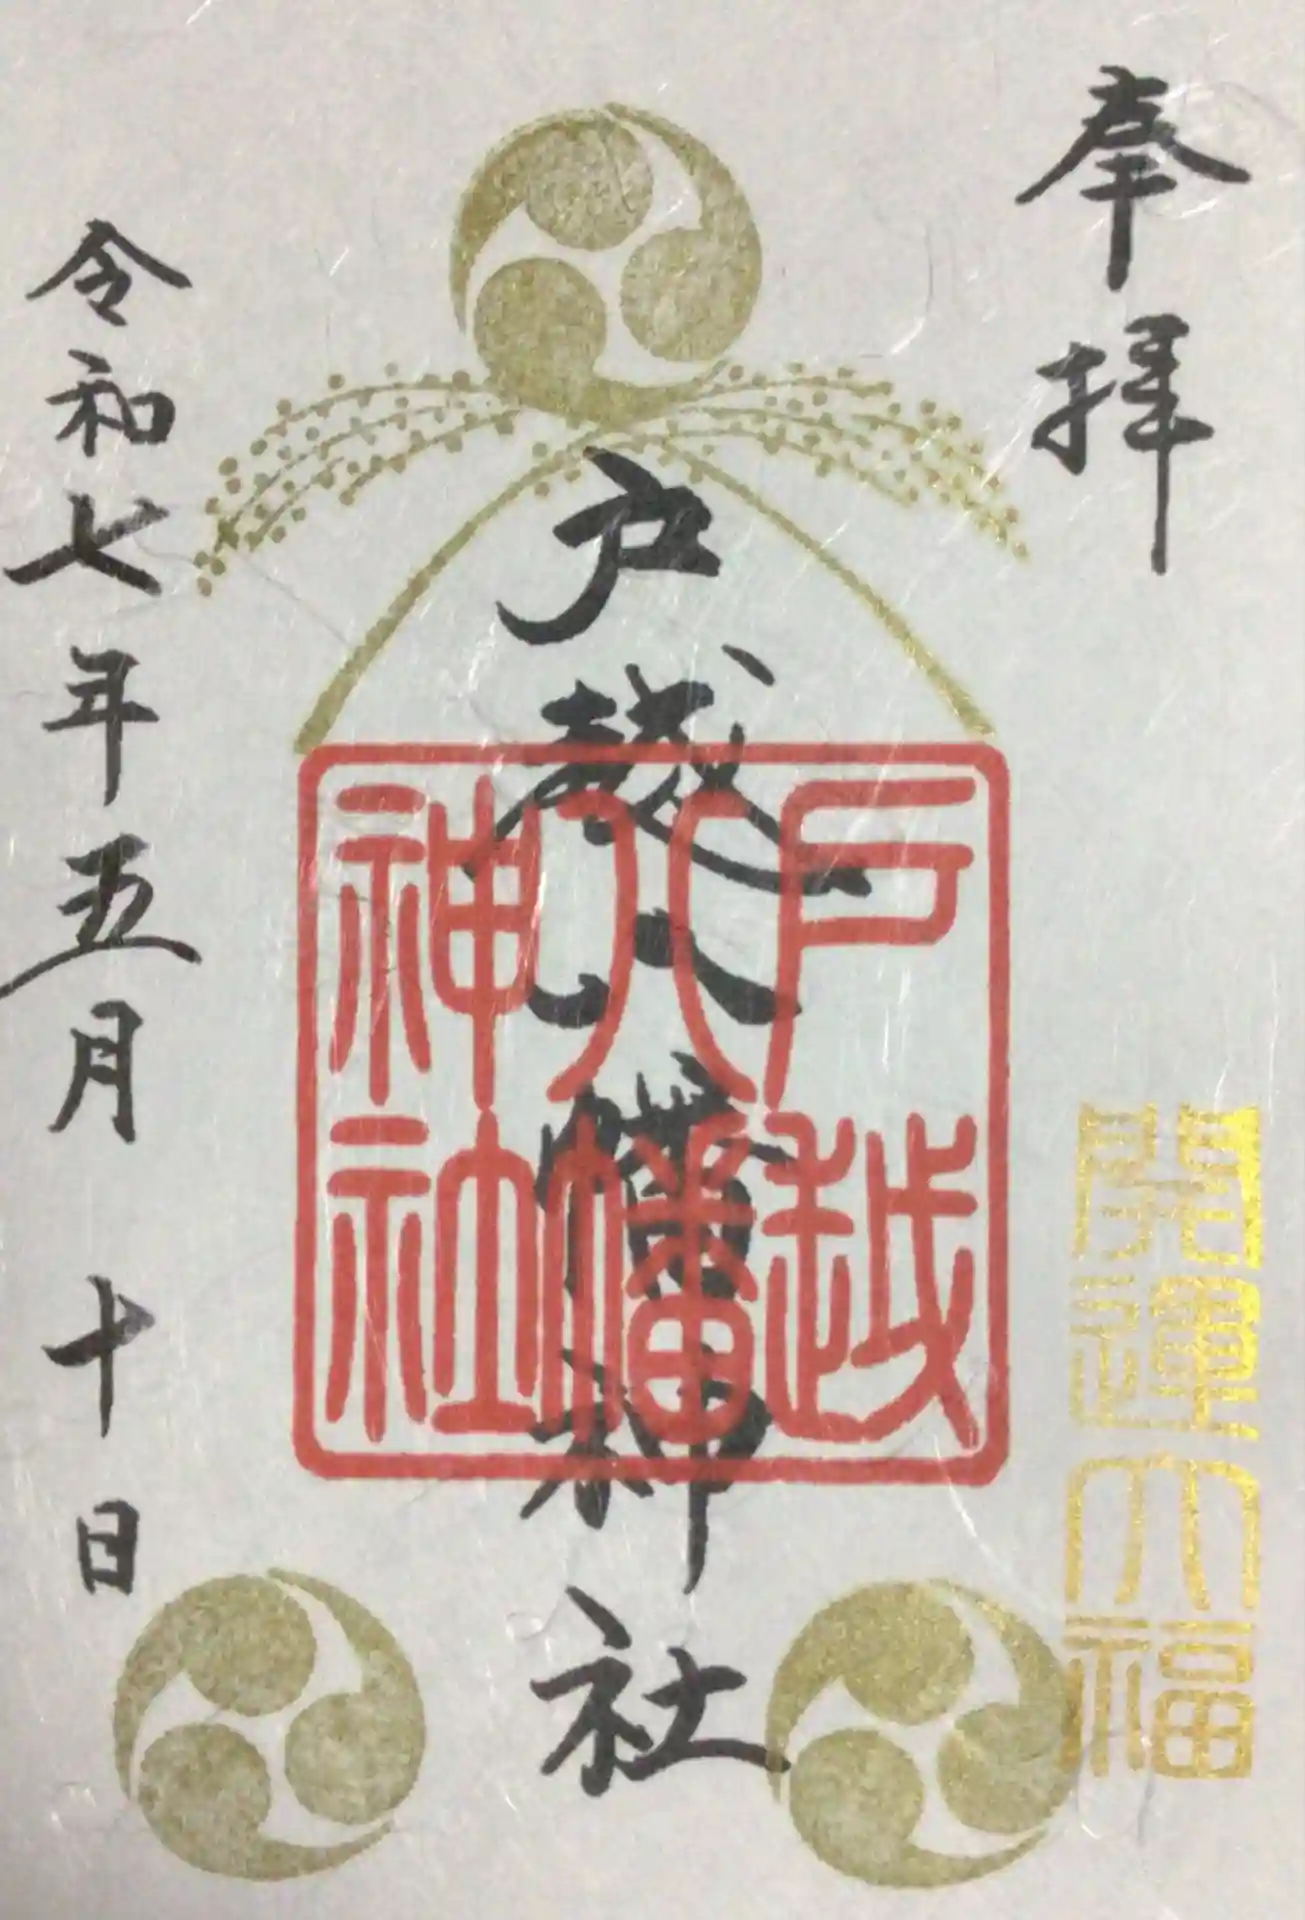 奉拝
開運大福
戸越八幡神社
戸越
八幡
神社
令和七年五月十日